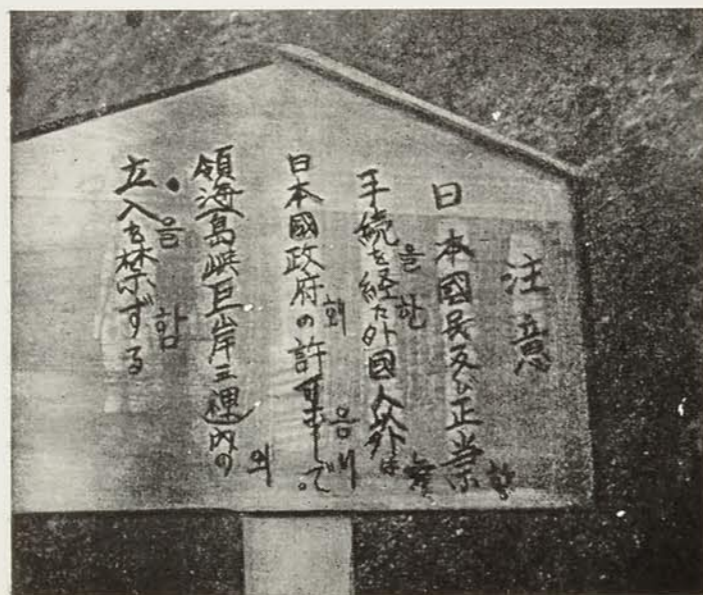 注意
日本國民及び正当な
을한
手続を経た外國人以外は
회
日本國政府の許可なしで
의
領海島峡巨岸三浬内の
을 함
立入を禁ずる